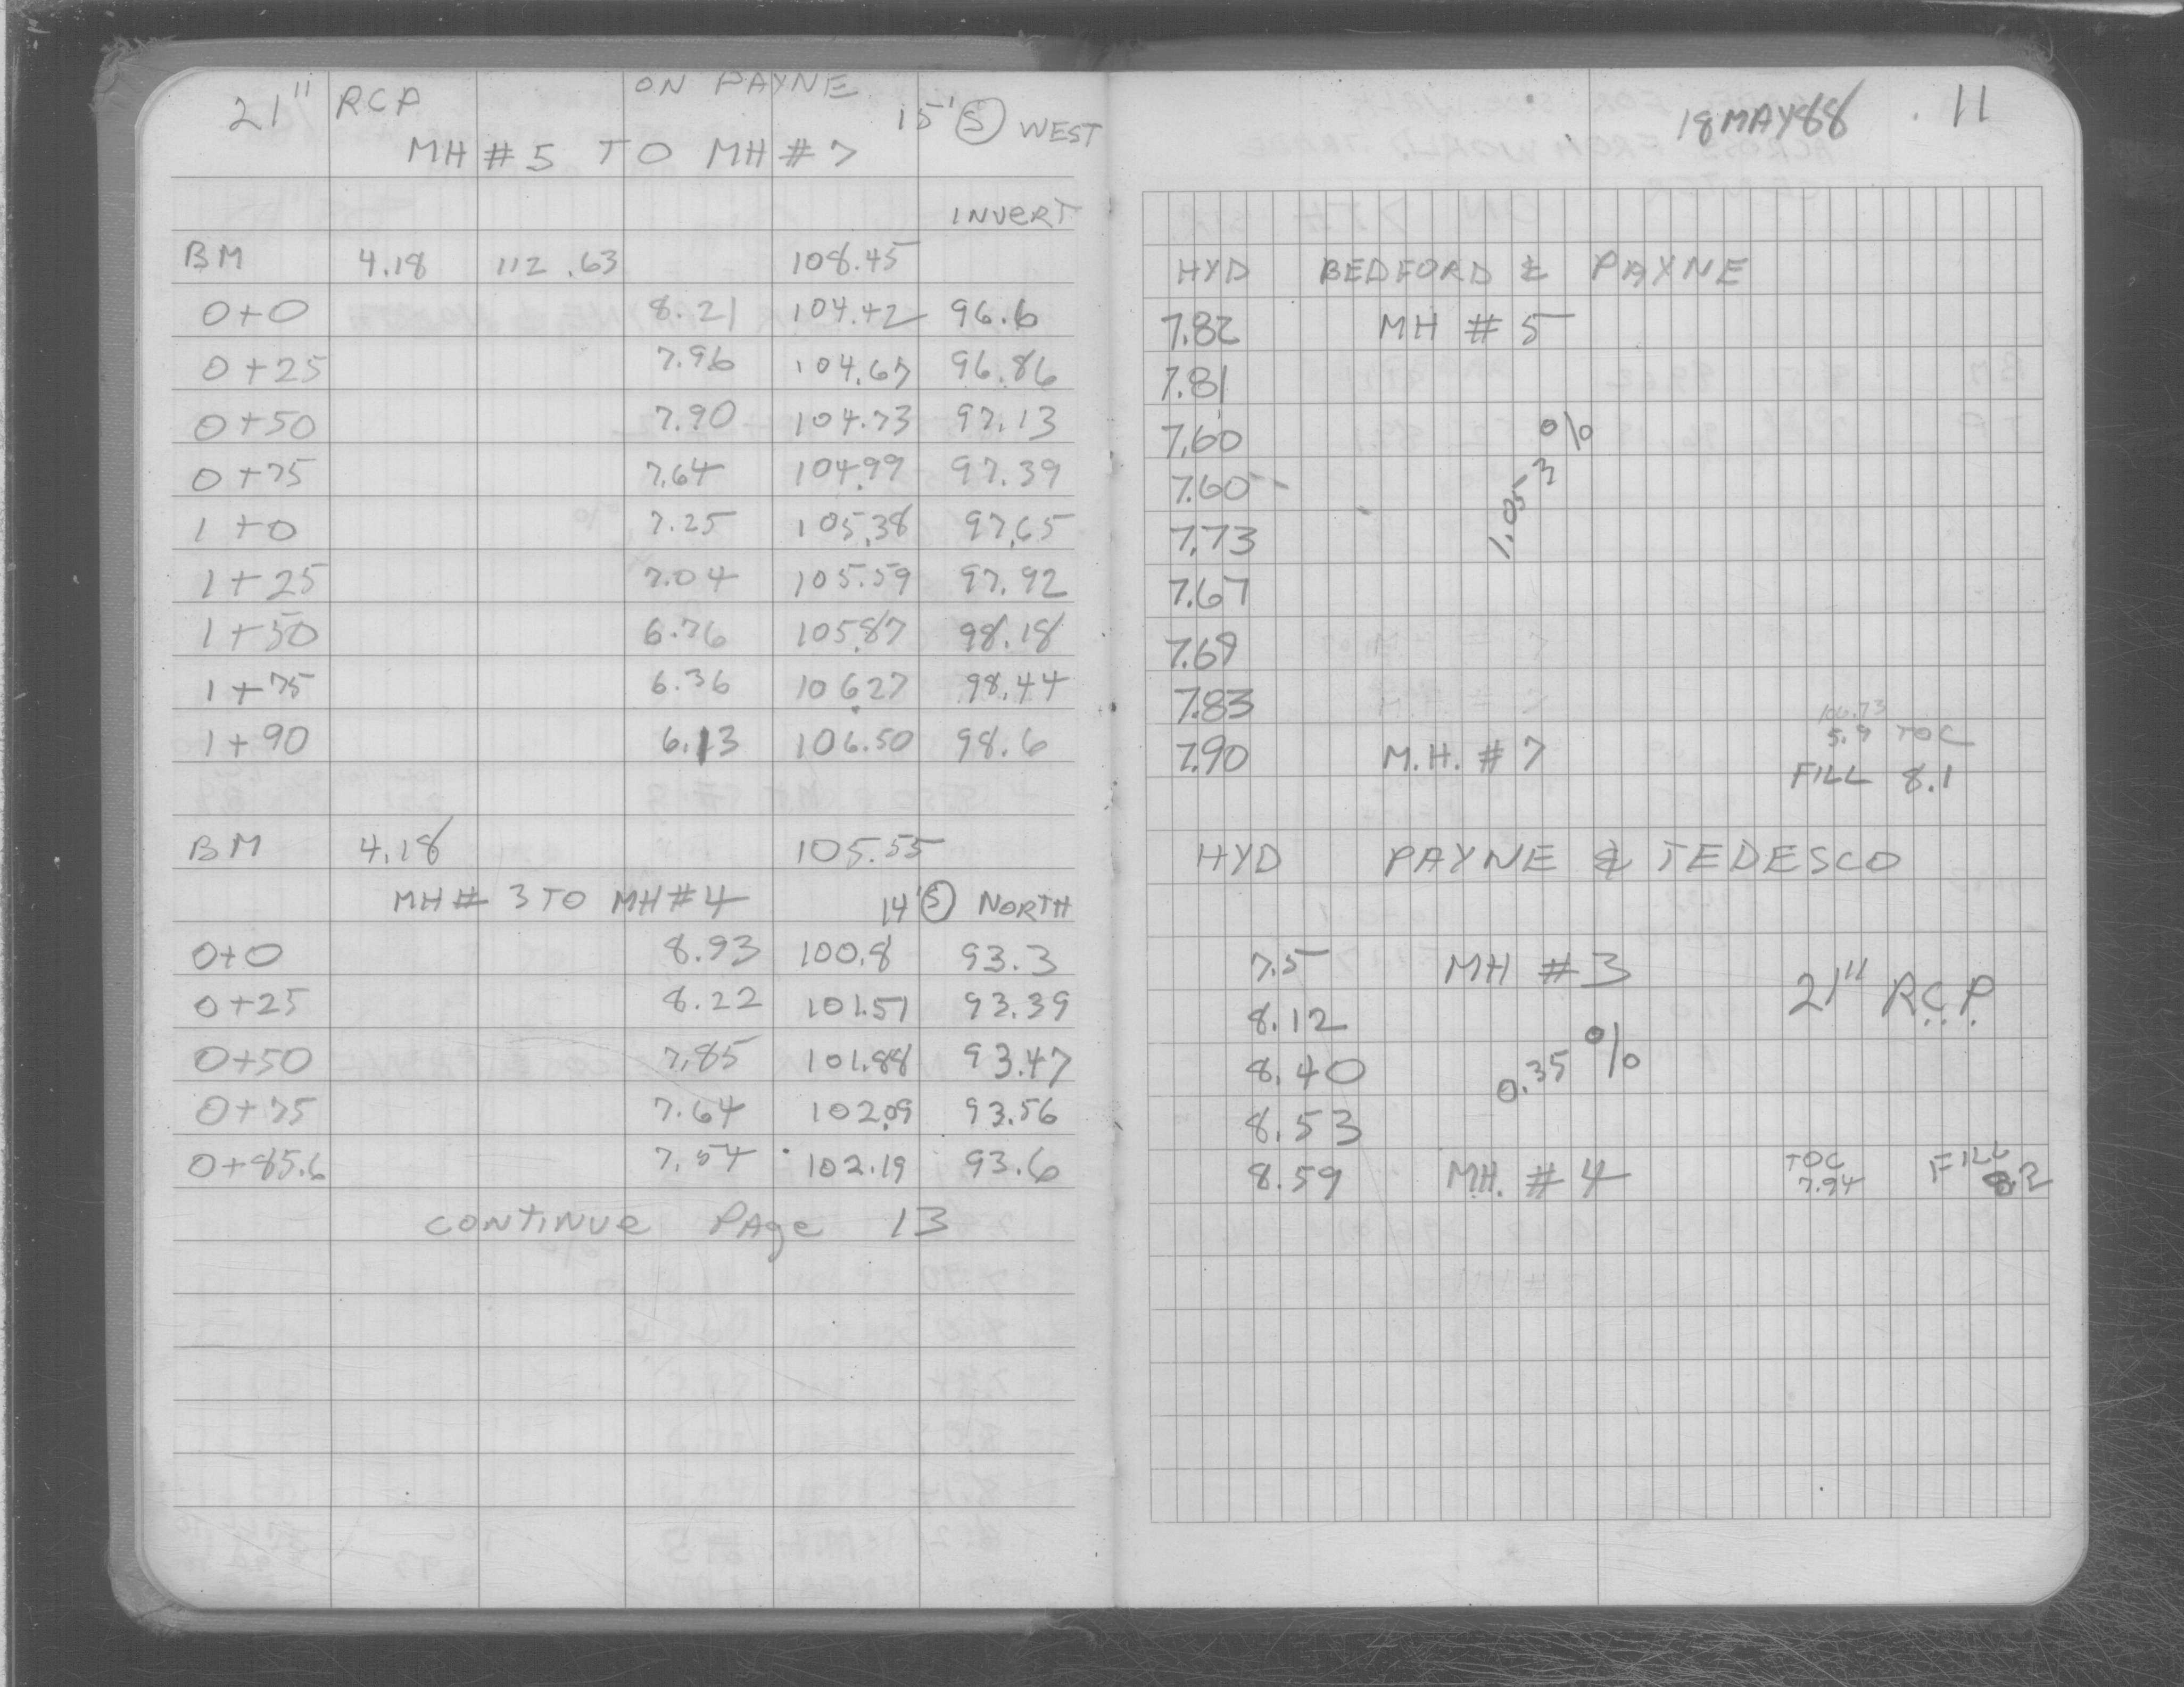 21" RCP ON PAYNE 15' Ⓢ WEST
MH # 5 TO MH # 7
INVERT
BM 4.18 112.63 108.45
0+0 8.21 104.42 96.6
0+25 7.96 104.67 96.86
0+50 7.90 104.73 97.13
0+75 7.64 104.99 97.39
1+0 7.25 105.38 97.65
1+25 7.04 105.59 97.92
1+50 6.76 105.87 98.18
1+75 6.36 106.27 98.44
1+90 6.13 106.50 98.6
BM 4.18 105.55
MH# 3 TO MH#4 14' Ⓢ NORTH
0+0 8.93 100.8 93.3
0+25 8.22 101.51 93.39
0+50 7.85 101.88 93.47
0+75 7.64 102.09 93.56
0+85.6 7.54 102.19 93.6
CONTINUE PAge 13
18 MAY 88 11
HYD BEDFORD & PAYNE
7.82 MH # 5
7.81
7.60
7.60
1.053 %
7.73
7.67
7.69
7.83
106.73
5.9 TOC
7.90 M.H. # 7
FILL 8.1
HYD PAYNE & TEDESCO
7.5 MH # 3
21" R.C.P.
8.12
8.40 0.35 %
8.53
8.59 MH. # 4 TOC 7.94 FILL 8.2